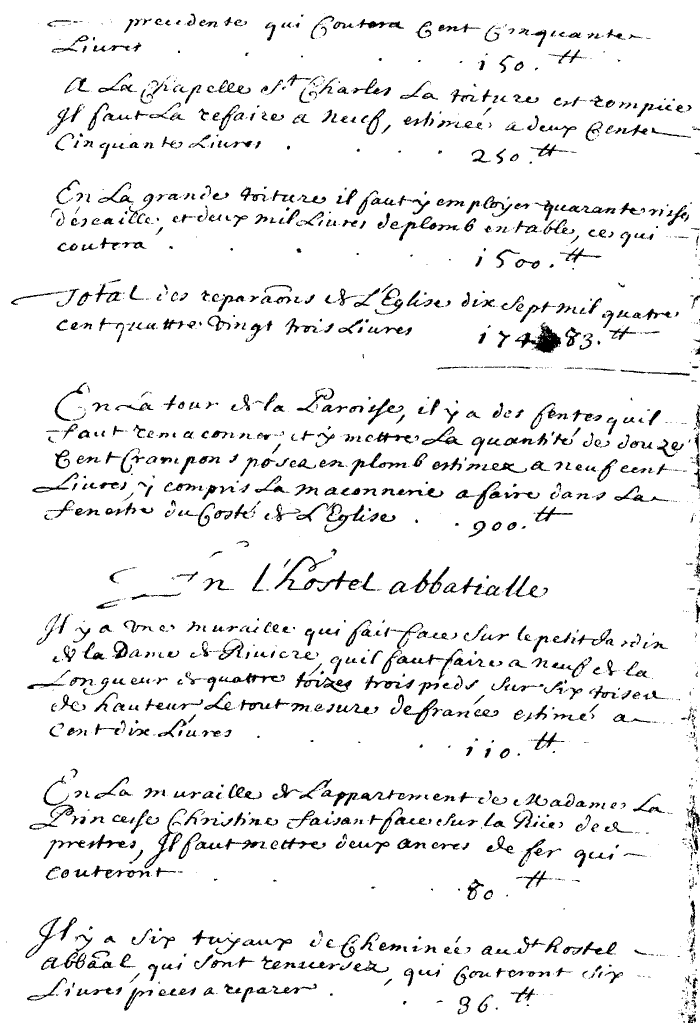 precedente qui Coutera Cent Cinquante
Livres . . . . 150. ₶
A La Chapelle St Charles La toiture est rompüe
Il faut La refaire a neuf, estimeé a deux Cente
Cinquante Livres . . . 250. ₶
En La grande toiture il faut y employer quarante risses
d'escaille, et deux mil Livres de plomb en table, ce qui
coutera . . . 1500. ₶
Total des reparaõns de L'Eglise dix sept mil quatre
cent quattre vingt trois Livres 174 83. ₶
En La tour de la Paroisse, il y a des fentes quil
faut remaconner, et y mettre La quantité de douze
Cent Crampons posez en plomb estimez a neuf cent
Livres, y compris La maconnerie a faire dans La
fenestre du Costé de L'Eglise . . 900. ₶
En l'hostel abbatialle
Il y a vne muraille qui fait face sur le petit Jardin
de la Dame de Riviere, quil faut faire a neuf de la
Longueur de quattre toizes trois pieds, sur six toises
de hauteur Le tout mesure de france estimé a
Cent dix Livres . . . . 110. ₶
En La muraille de L'appartement de Madame La
Princesse Christine faisant face sur la Rüe des
prestres, Il faut mettre deux ancres de fer qui
couteront . . . 80. ₶
Il y a six tuyaux de Cheminée audt hostel
abbãal, qui sont renversez, qui Couteront six
Livres pieces a reparer . . . 36. ₶